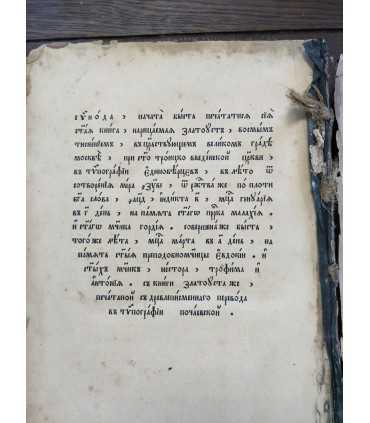 сѵнода , начата бысть печататися сїѧ
ст҃аѧ книга , нарицаемаѧ златоустъ , восмымъ
тисненїемъ , въ царствующемъ великомъ градѣ
москвѣ , при ст҃о троицко введенской церкви ,
въ тѷпографїи единовѣрцевъ , въ лѣто ѿ
сотворенїѧ мира ѿ рж҃тва же по плоти
бг҃а слова , індїкта мц҃а генуарїа
въ г҃ день , на память ст҃аго прⷪ҇рка малахїи .
и ст҃аго мч҃нка гордїѧ . совершена же бысть ,
того же лѣта , мц҃а марта въ а҃ день , на
память ст҃ыѧ преподобномч҃ицы євдокїи . и
ст҃ыхъ мч҃нкъ , нестора , трофима и
антонїѧ . съ книги златоуста же ,
печатаной съ древлеписменнаго перевода
въ тѷпографїи почаевской .